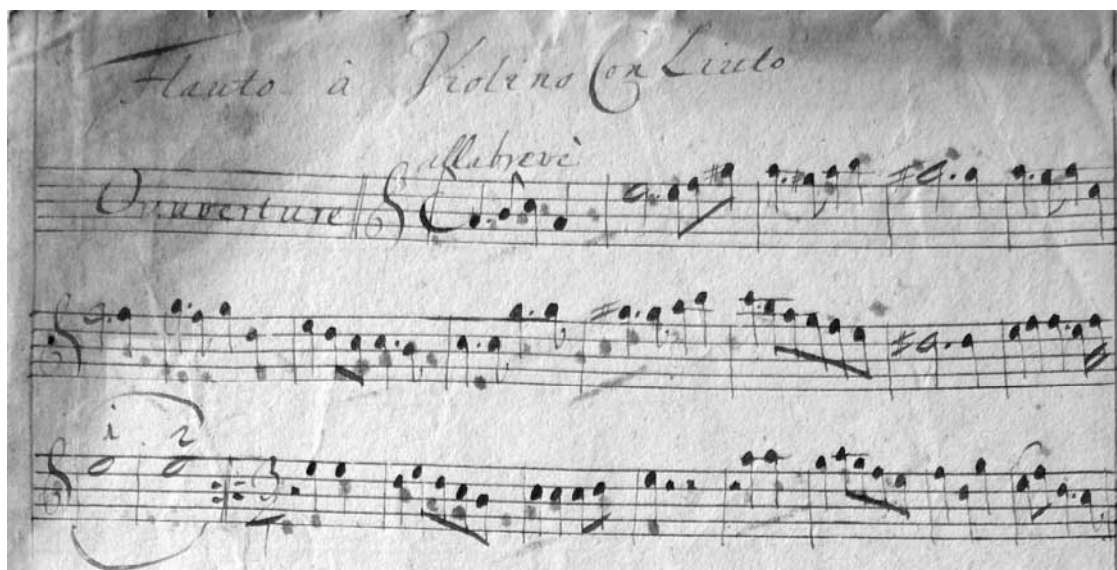 Flauto à Violino Con Liuto
allabrevè
Ouuverture
1 2
3